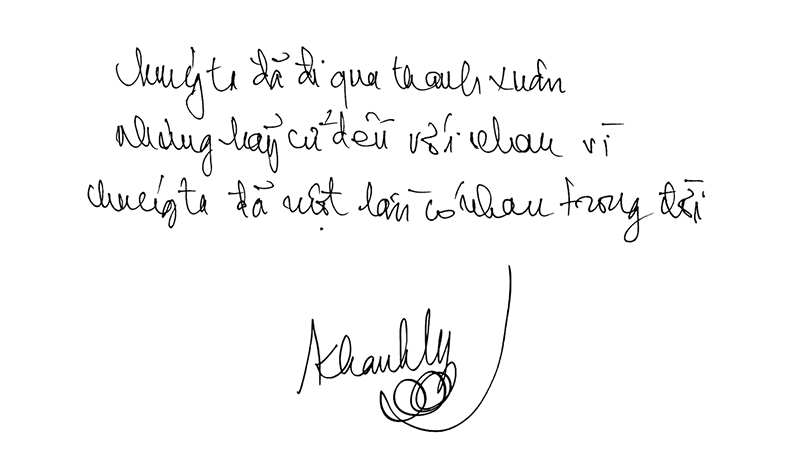 chúng ta đã đi qua thanh xuân
nhưng hãy cứ đến với nhau vì
chúng ta đã một lần có nhau trong đời
Khánh Ly